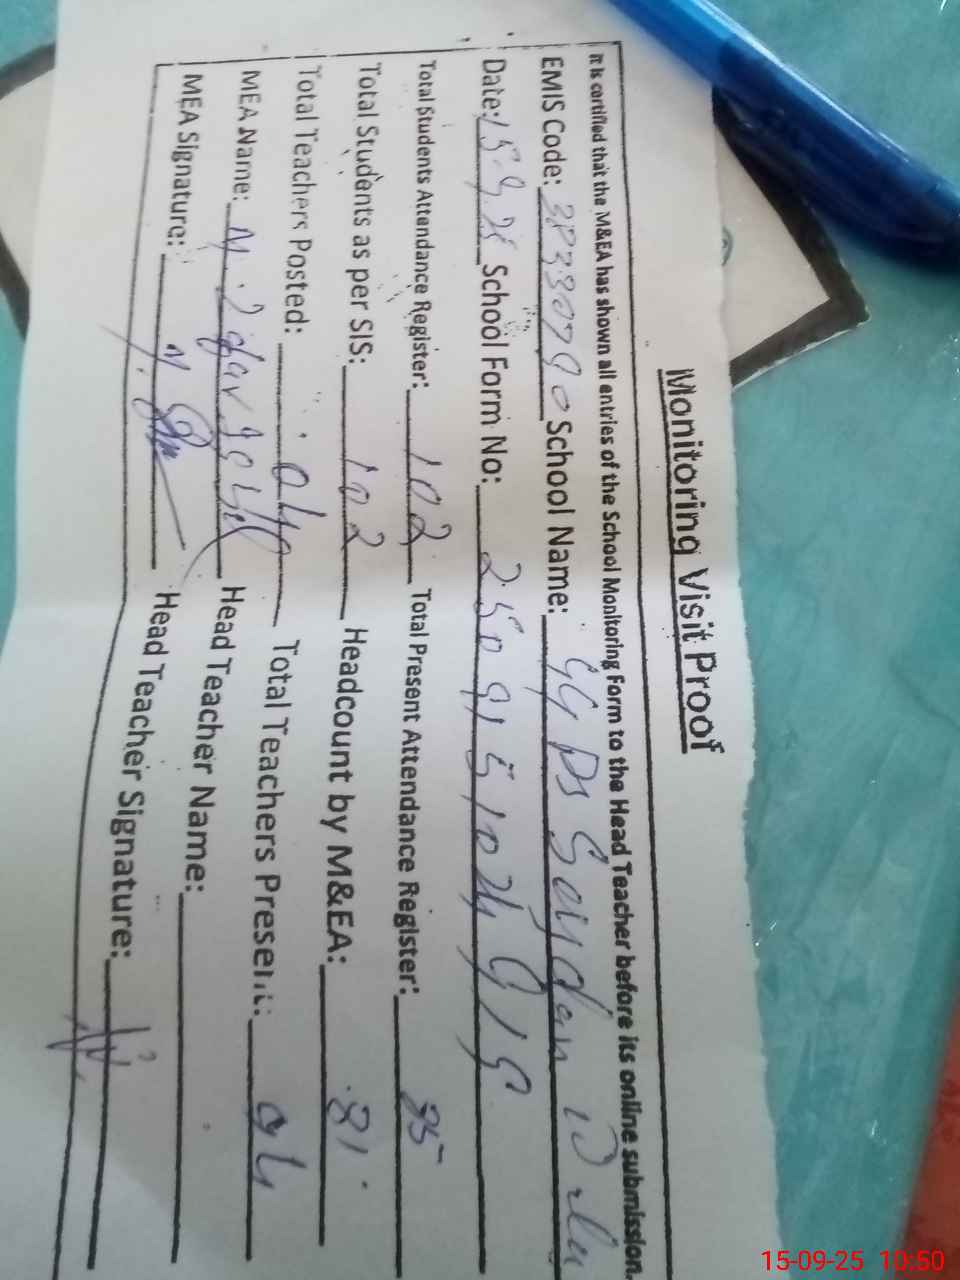 Monitoring Visit Proof
It is certified that the M&EA has shown all entries of the School Monitoring Form to the Head Teacher before its online submission.
EMIS Code: School Name: GGPS
Date: 15.9.25 School Form No:
Total Students Attendance Register: 102 Total Present Attendance Register: 85
Total Students as per SIS: 102 Headcount by M&EA: 81
Total Teachers Posted: 04 Total Teachers Present: 04
MEA Name: M. Head Teacher Name:
MEA Signature: Head Teacher Signature:
15-09-25 10:50